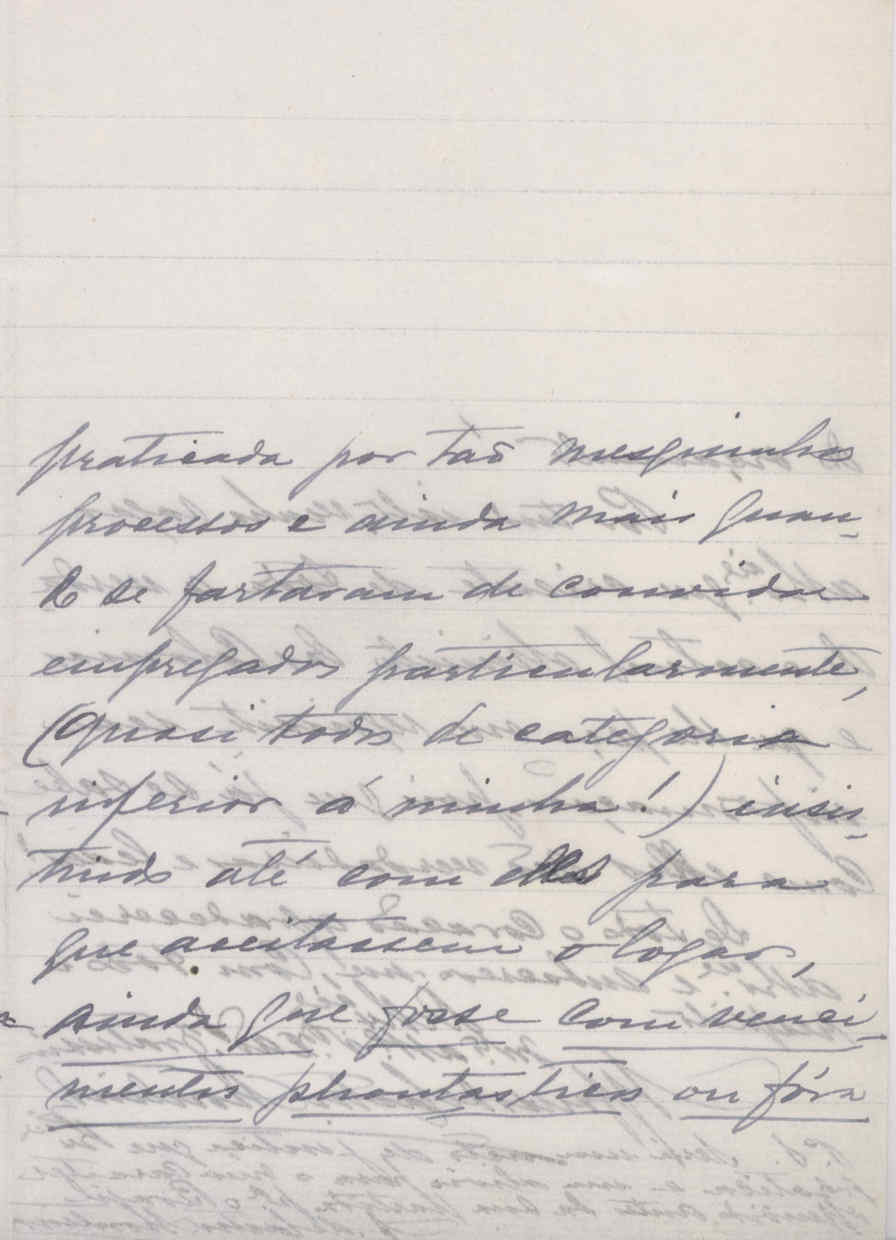 praticada por taõ mesquinhos
processos e ainda mais quan-
do se fartaram de convidar
empregados particularmente,
(quasi todos de categoria
inferior á minha!) insis-
tindo até com elles para
que aceitassem o logar,
ainda que fosse com venci-
mentos phantasticos ou fóra